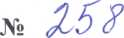 № 258